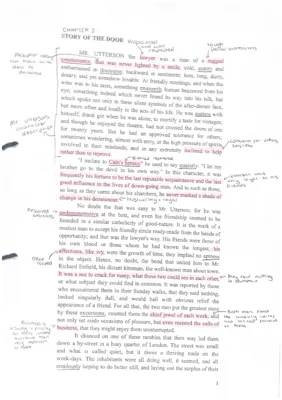 CHAPTER 1
STORY OF THE DOOR
MR. UTTERSON the lawyer was a man of a rugged
countenance, that was never lighted by a smile; cold, scanty and
embarrassed in discourse; backward in sentiment; lean, long, dusty,
dreary, and yet somehow lovable. At friendly meetings, and when the
wine was to his taste, something eminently human beaconed from his
eye; something indeed which never found its way into his talk, but
which spoke not only in these silent symbols of the after-dinner face,
but more often and loudly in the acts of his life. He was austere with
himself; drank gin when he was alone, to mortify a taste for vintages;
and though he enjoyed the theatre, had not crossed the doors of one
for twenty years. But he had an approved tolerance for others;
sometimes wondering, almost with envy, at the high pressure of spirits
involved in their misdeeds; and in any extremity inclined to help
rather than to reprove.
"I incline to Cain's heresy," he used to say quaintly: "I let my
brother go to the devil in his own way." In this character, it was
frequently his fortune to be the last reputable acquaintance and the last
good influence in the lives of down-going men. And to such as these,
so long as they came about his chambers, he never marked a shade of
change in his demeanour.
No doubt the feat was easy to Mr. Utterson; for he was
undemonstrative at the best, and even his friendship seemed to be
founded in a similar catholicity of good-nature. It is the mark of a
modest man to accept his friendly circle ready-made from the hands of
opportunity; and that was the lawyer's way. His friends were those of
his own blood or those whom he had known the longest; his
affections, like ivy, were the growth of time, they implied no aptness
in the object. Hence, no doubt, the bond that united him to Mr.
Richard Enfield, his distant kinsman, the well-known man about town.
It was a nut to crack for many, what these two could see in each other,
or what subject they could find in common. It was reported by those
who encountered them in their Sunday walks, that they said nothing,
looked singularly dull, and would hail with obvious relief the
appearance of a friend. For all that, the two men put the greatest store
by these excursions, counted them the chief jewel of each week, and
not only set aside occasions of pleasure, but even resisted the calls of
business, that they might enjoy them uninterrupted.
It chanced on one of these rambles that their way led them
down a by-street in a busy quarter of London. The street was small
and what is called quiet, but it drove a thriving trade on the
week-days. The inhabitants were all doing well, it seemed, and all
emulously hoping to do better still, and laying out the surplus of their